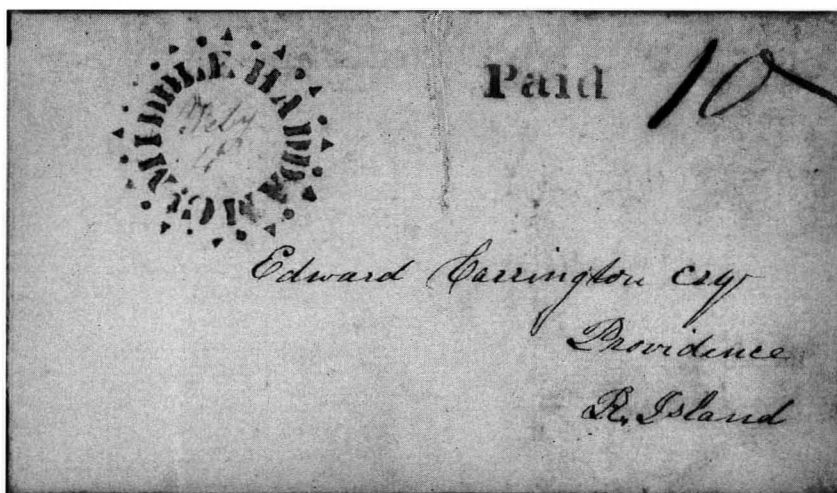 MIDDLE HADDAM C.
Feby
4
Paid 10
Edward Carrington Esqr
Providence
R. Island